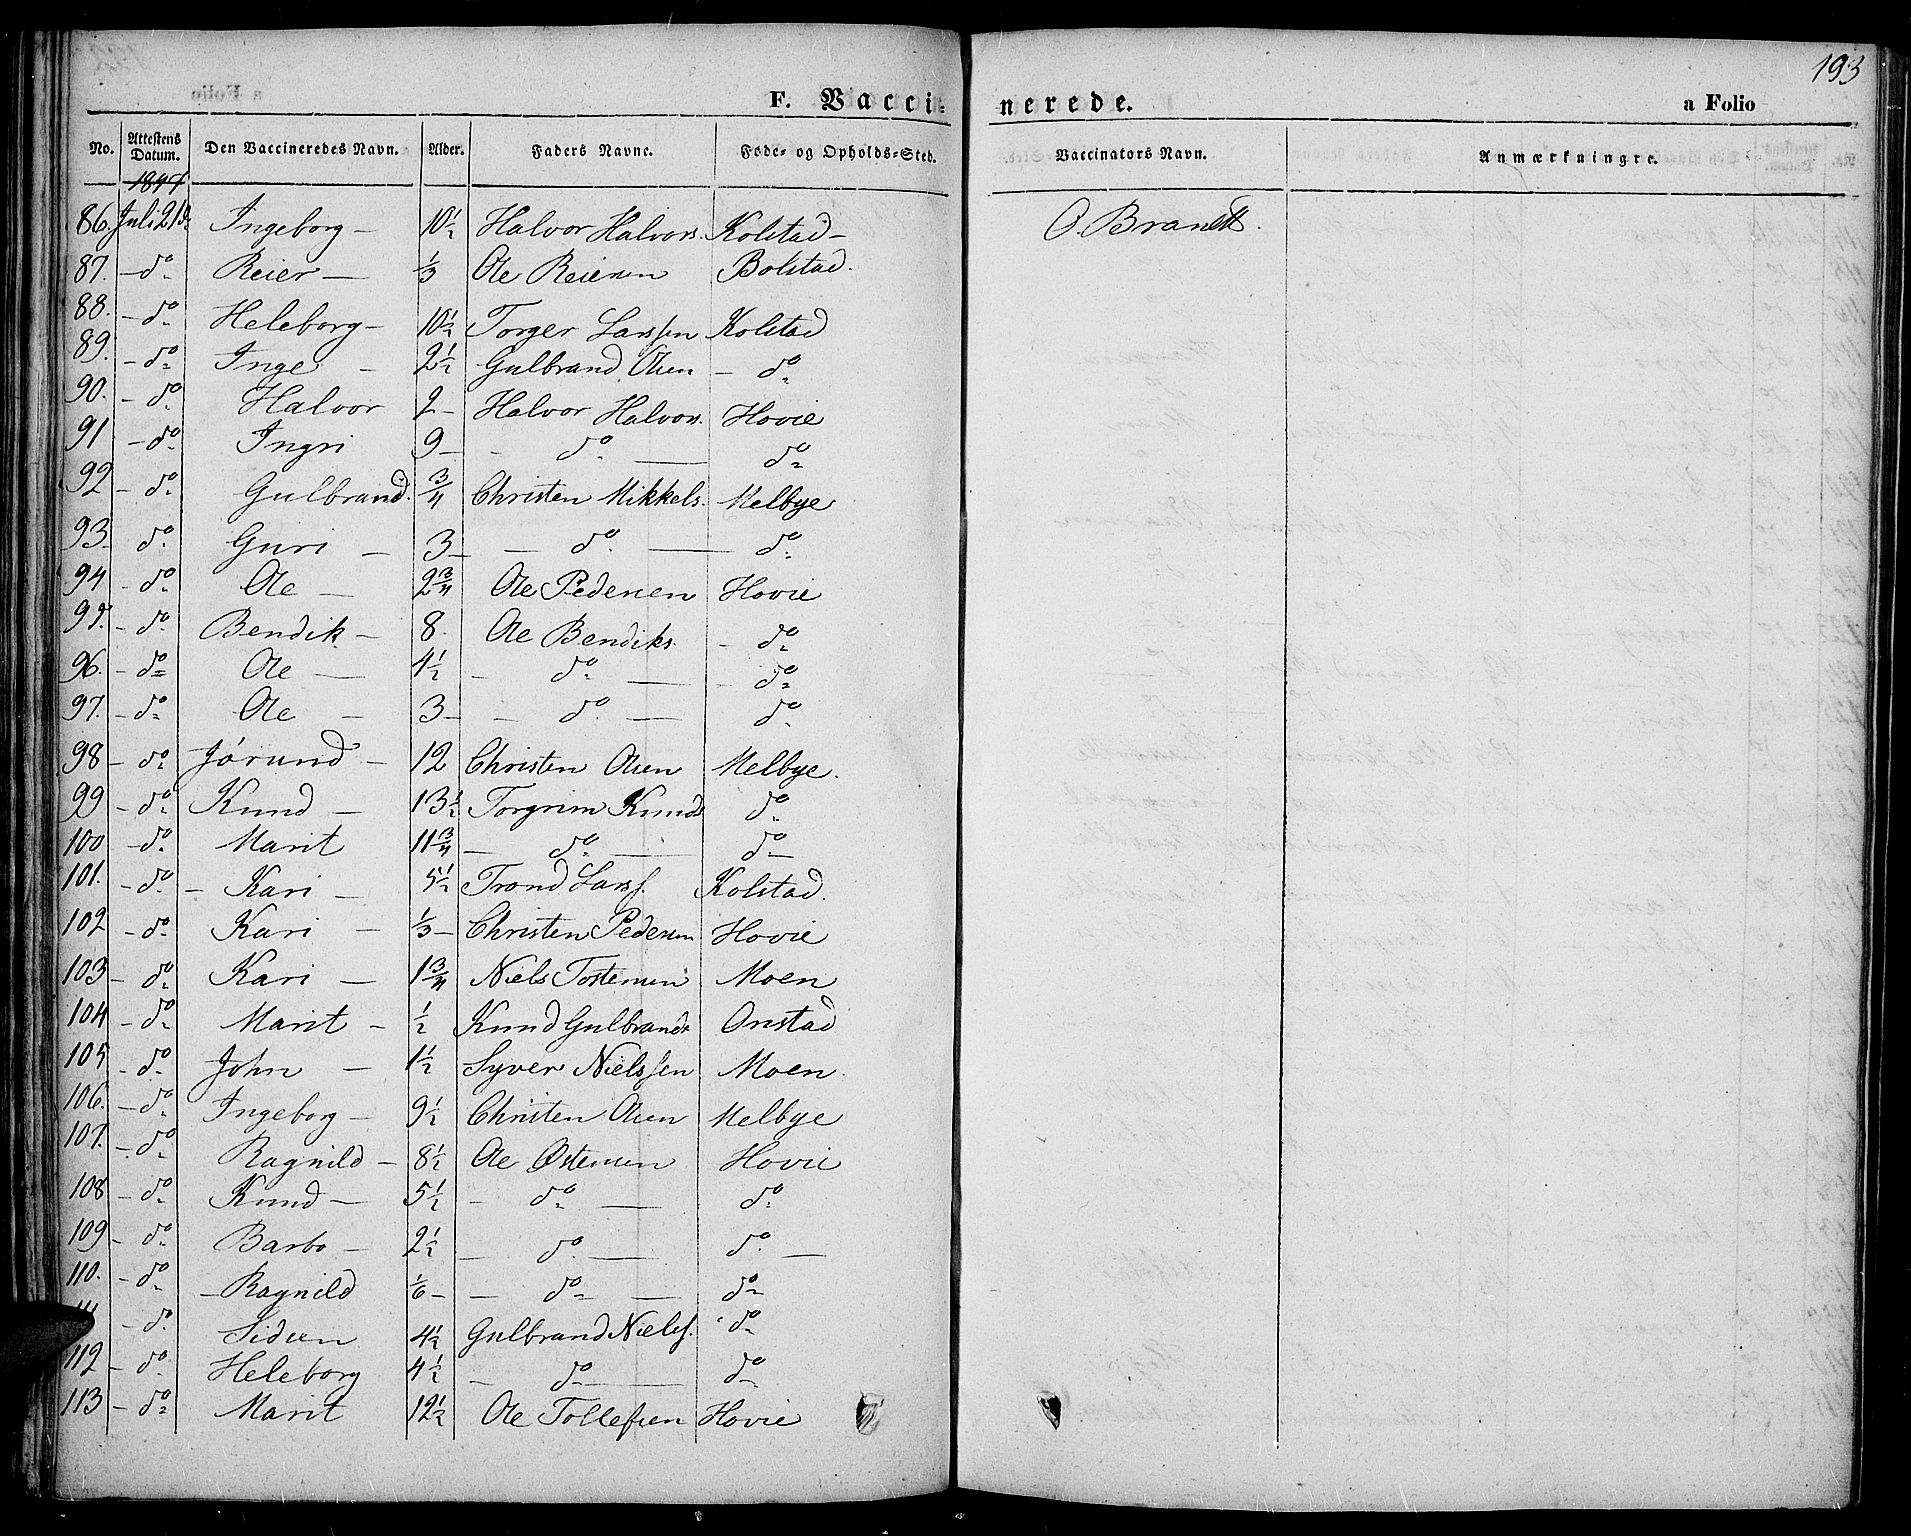 193
F. Vaccinerede. a Folio
No. Attestens Datum. Den Vaccineredes Navn. Alder. Faders Navne. Føde- og Opholds-Sted. Vaccinators Navn. Anmærkninger.
1847
86. Juli 21de Ingeborg - 10½ Halvor Halvors. Kolstad - O. Brandt.
87. - do Reier - ⅓ Ole Reiersen Bolstad.
88. - do Heleborg - 10½ Torger Larssen Kolstad
89. - do Inge - 2½ Gulbrand Olsen - do
90. - do Halvor 2 - Halvor Halvors. Hovie
91 - do Ingri 9 - - do - do
92 - do Gulbrand. ¾ Christen Mikkels. Melbye
93 - do Guri - 3 - - do - do
94 - do Ole - 2¾ Ole Pedersen Hovie
95. - do Bendik - 8. Ole Bendiks. - do
96. - do Ole - 4½ - do - - do
97. - do Ole - 3 - - do - do
98 - do Jørund - 12 Christen Olsen Melbye.
99 - do Knud - 13½ Torgrim Knuds do
100 - do Marit 11¾ - do - do -
101. - do - Kari - 5½ Trond Larss. Kolstad.
102 - do Kari - ⅓ - Christen Pedersen Hovie
103 - do Kari - 1¾ Niels Tostensen Moen
104 - do Marit - ½ Knud Gulbrands Onstad
105 - do John - 1½ Syver Nielssen Moen.
106. - do Ingeborg - 9½ Christen Olsen Melbye
107. - do Ragnild - 8½ Ole Østensen Hovie
108 - do Knud - 5½ - do - do
109 - do Barbo - 2½ - do - do -
110. - do - Ragnild ⅙ - - do - do
- do 4½ Gulbrand Niels. do
112 - do Heleborg 4½ - do - do
113 - do Marit 12½ Ole Tollefsen Hovie